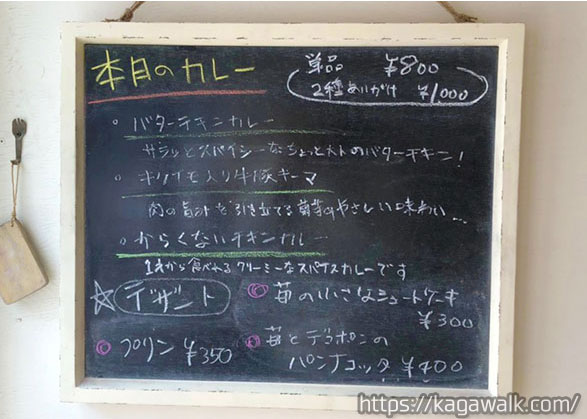 本日のカレー
単品 ¥800
2種あいがけ ¥1,000
。バターチキンカレー
サラッとスパイシーなちょっと大人のバターチキン!
。キクイモ入り牛豚キーマ
肉の旨みを引き立てる菊芋のやさしい味わい…
。からくないチキンカレー
1才から食べれるクリーミーなスパイスカレーです
☆デザート
苺の小さなショートケーキ
¥300
プリン ¥350
苺とデコポンの
パンナコッタ ¥400
https://kagawalk.com/